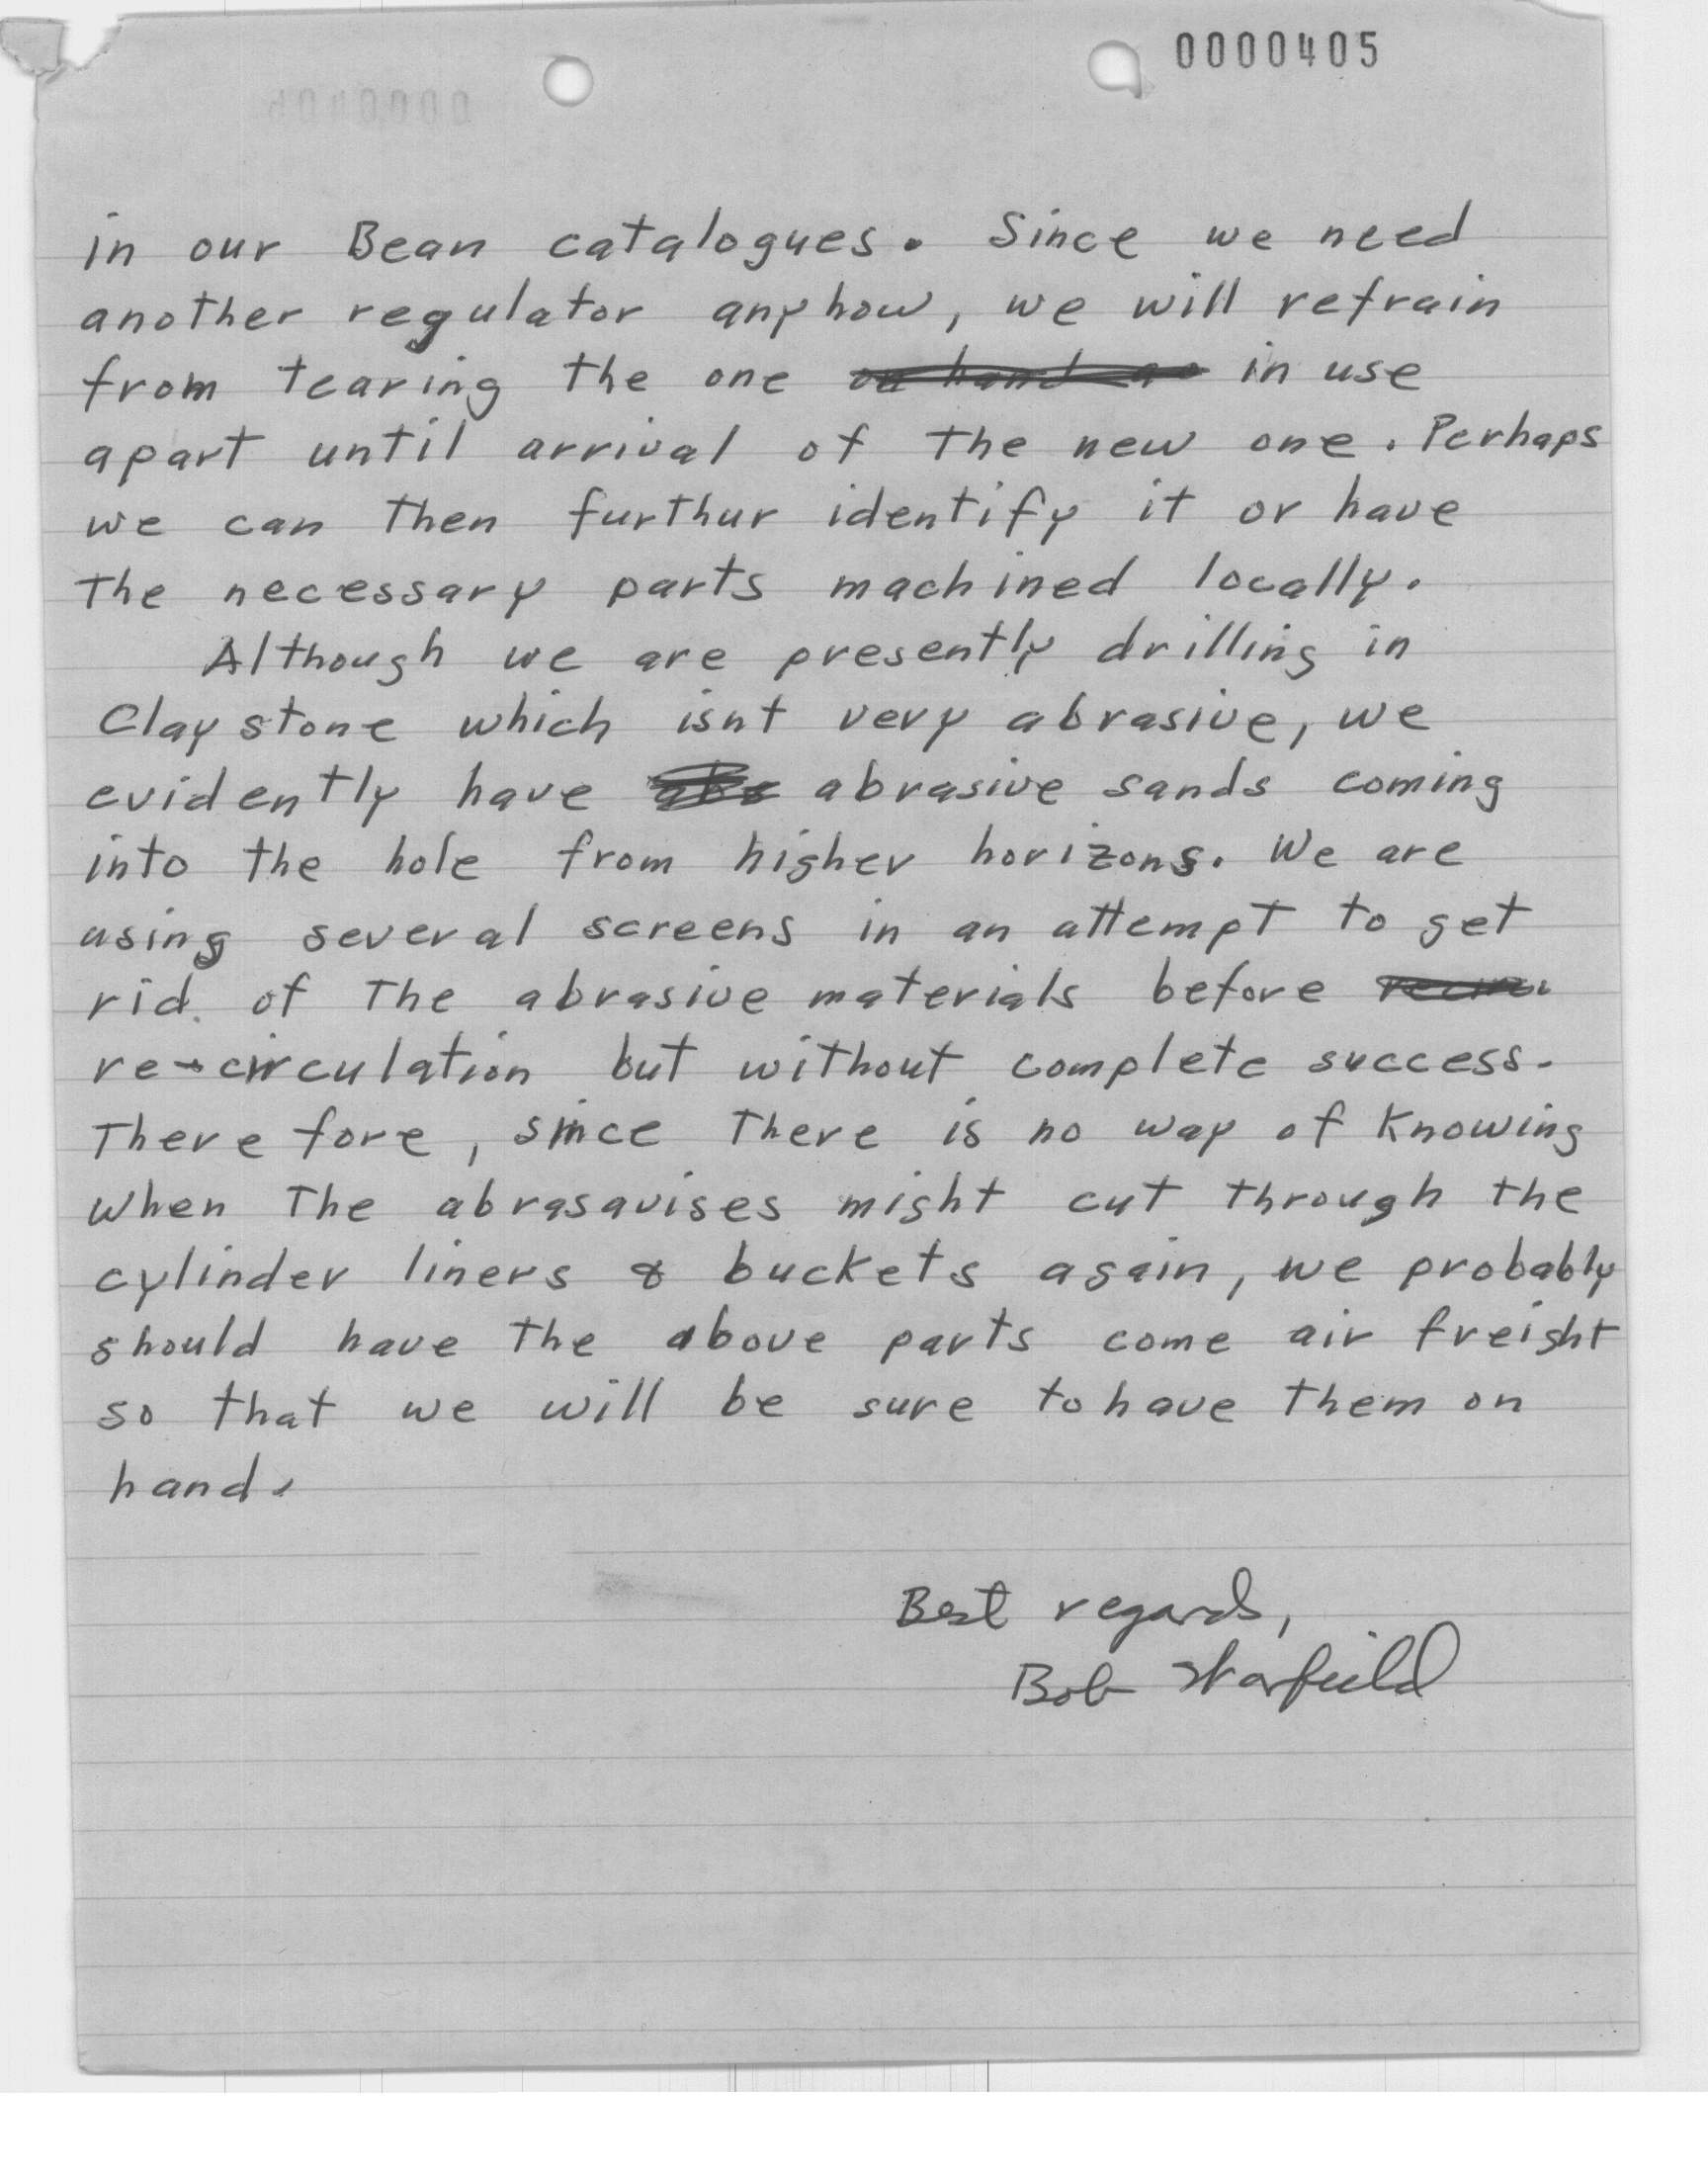 0000405
in our Bean catalogues. Since we need
another regulator anyhow, we will refrain
from tearing the one on hand in use
apart until arrival of the new one. Perhaps
we can then furthur identify it or have
the necessary parts machined locally.
Although we are presently drilling in
Claystone which isnt very abrasive, we
evidently have abrasive sands coming
into the hole from higher horizons. We are
using several screens in an attempt to get
rid of the abrasive materials before
re-circulation but without complete success.
Therefore, since there is no way of knowing
when the abrasavises might cut through the
cylinder liners & buckets again, we probably
should have the above parts come air freight
so that we will be sure to have them on
hand.
Best regards,
Bob Warfield